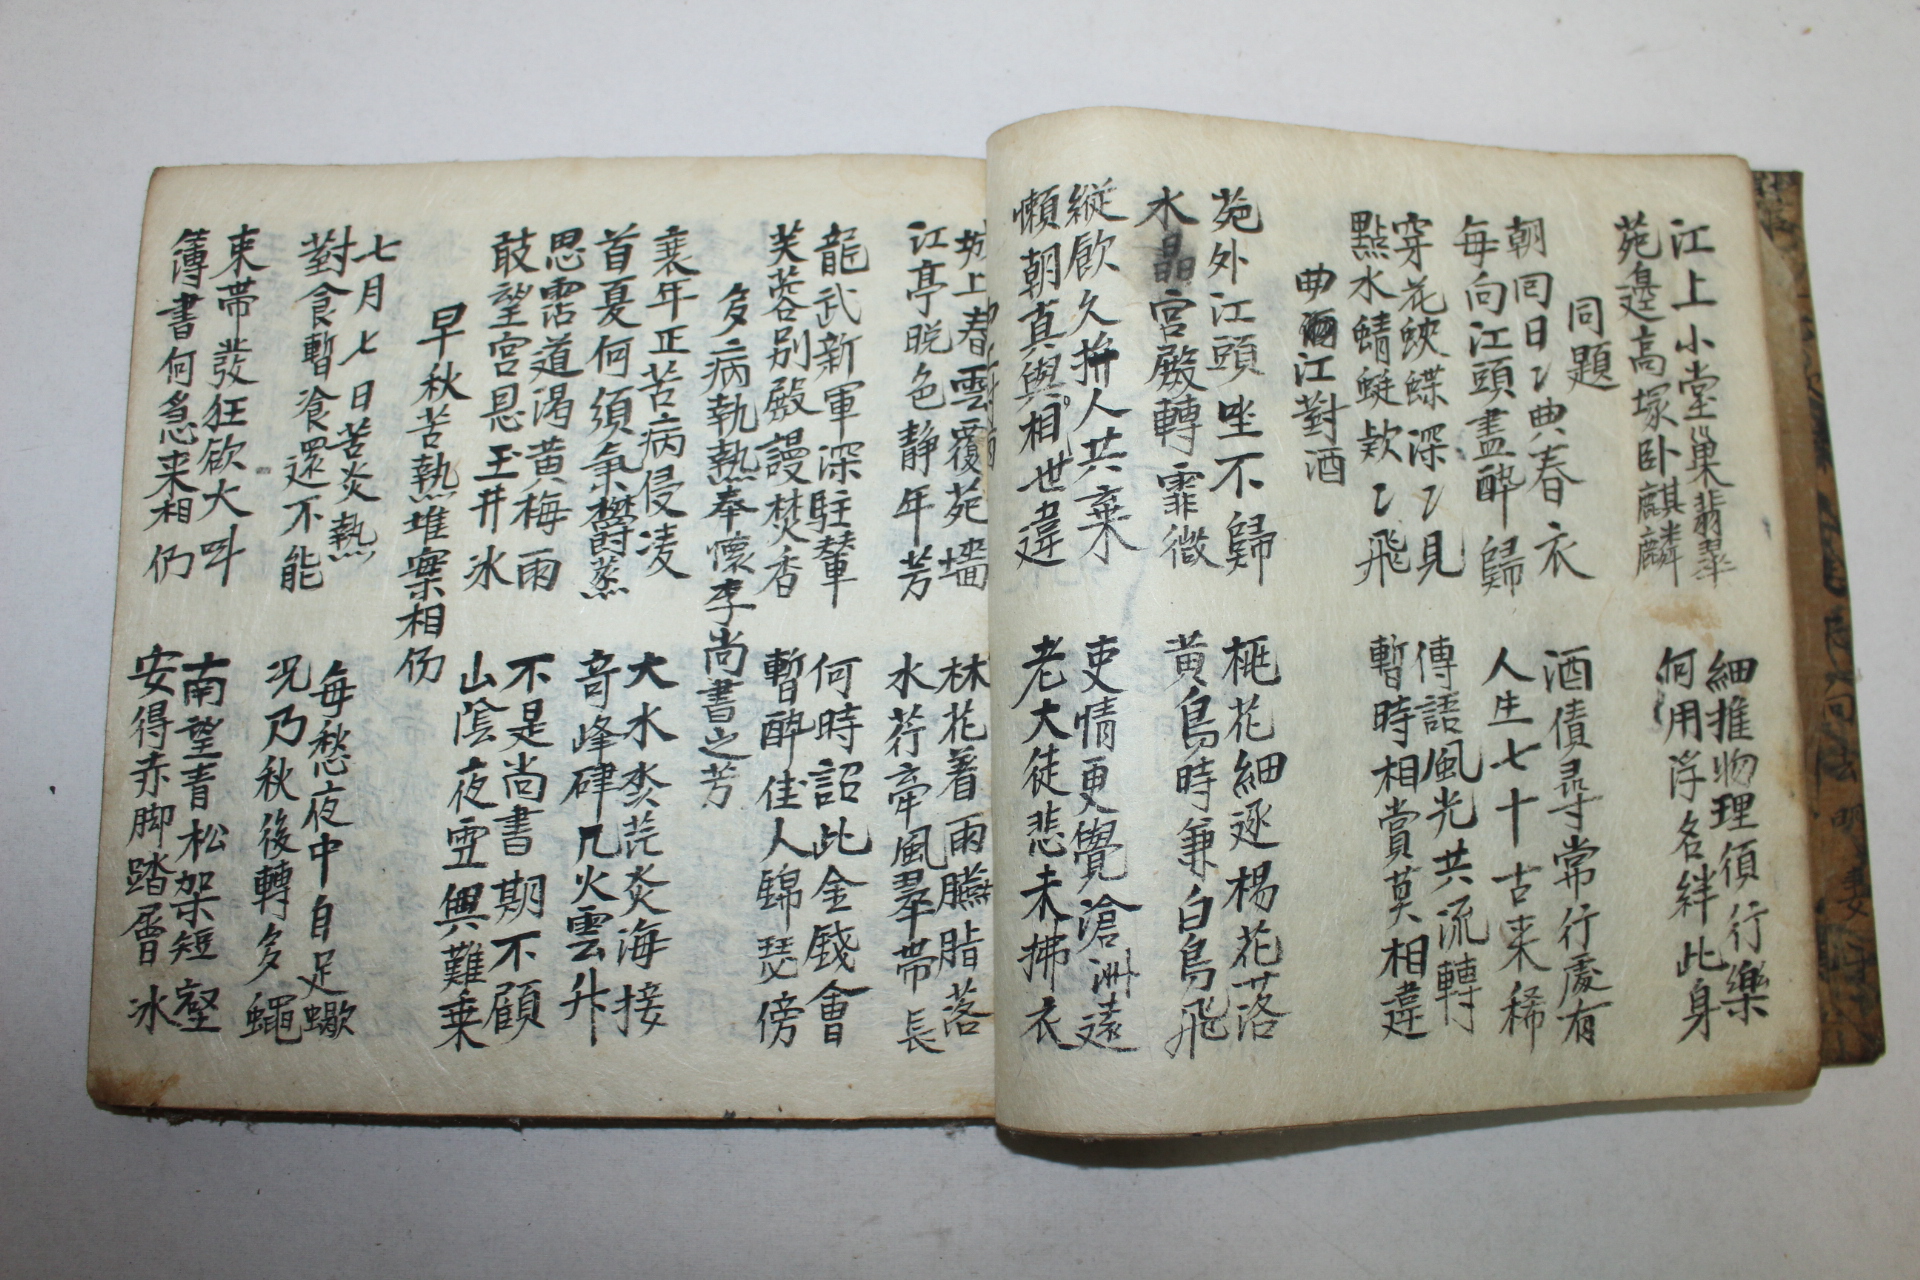 江上小堂巢翡翠
苑邊高塚卧麒麟
細推物理須行樂
何用浮名絆此身
同題
朝囘日〻典春衣
每向江頭盡醉歸
酒債尋常行處有
人生七十古来稀
穿花蛺蝶深〻見
點水蜻蜓欵〻飛
傳語風光共流轉
暫時相賞莫相違
曲江對酒
苑外江頭坐不歸
水晶宮殿轉霏微
桃花細逐楊花落
黄鳥時兼白鳥飛
縱飮久拚人共棄
懶朝真與相世違
吏情更覺滄洲遠
老大徒悲未拂衣
城上春雲覆苑墻
江亭晩色静年芳
林花着雨臙脂落
水荇牽風翠帶長
龍武新軍深駐輦
芙蓉別殿謾焚香
何時詔此金錢會
暫醉佳人錦瑟傍
多病執熱奉懷李尚書之芳
衰年正苦病侵凌
首夏何須氣欝蒸
大水淼茫炎海接
竒峰硉兀火雲升
思霑道渴黄梅雨
敢望宮恩玉井氷
不是尚書期不顧
山陰夜雪興難乗
早秋苦熱堆案相仍
七月七日苦炎熱
對食暫飡還不能
每愁夜中自足蠍
况乃秋後轉多蠅
束帶發狂欲大叫
簿書何急来相仍
南望青松架短壑
安得赤脚踏層氷